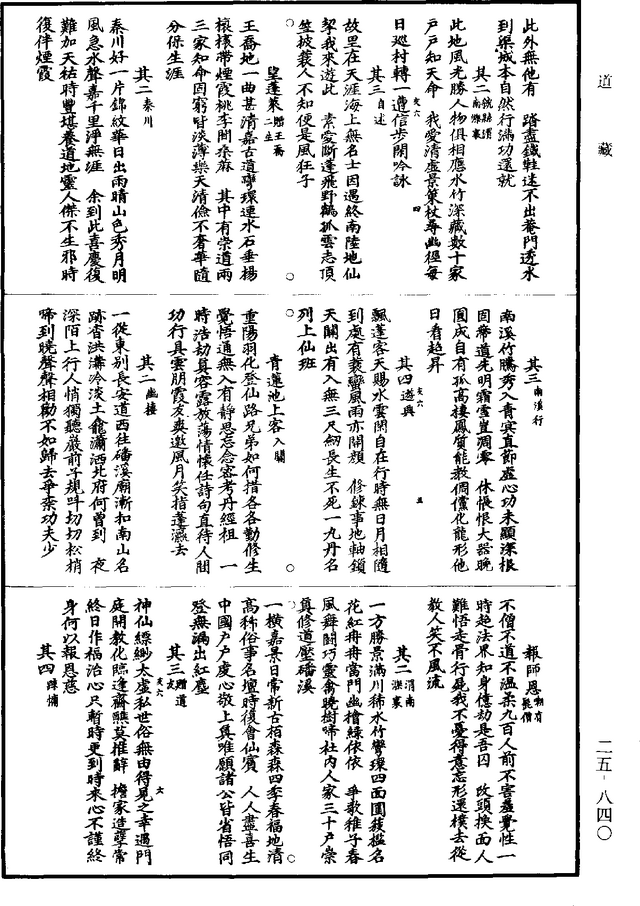 道藏
此外無他有　踏盡鐵鞋迷不出菴門透水
到渠成本自然行滿功還就
其二
此地風光勝人物俱相應水竹深藏數十家
戶戶知天命　我愛清虛景策杖尋幽徑每
日巡村轉一遭信步閑吟詠
其三自述
故里在天涯海上無名士因遇終南陸地仙
挈我來遊此　素愛斷蓬飛野鶴孤雲志頂
笠披蓑人不知便是風狂子
望蓬萊
王喬地一曲甚清嘉古道彎環連水石垂楊
槎枒帶煙霞桃李間桑麻　其中有崇道兩
三家知命固窮甘淡薄樂天清儉不奢華隨
分保生涯
其二秦川
秦川好一片錦紋華日出雨晴山色秀月明
風急水聲嘉千里淨無涯　余到此喜慶復
難加天祐時豐堪養道地靈人傑不生邪時
復伴煙霞
其三南溪行
南溪竹騰秀入青冥直節虛心功未顯深根
固蔕道先明霜雪豈凋零　休悵恨大器晚
圓成自有孤高棲鳳質能教倜儻化龍形他
日看超昇
其四遊興
飄蓬客天賜水雲閑自在行時無日月相隨
到處有蓑蠻風雨亦開顏　修鍊事地軸鎖
天關出有入無三尺劒長生不死一九丹名
列上仙班
青蓮池上客入關
重陽羽化登仙路兄弟如何措各各勤修生
覺悟通無入有靜思忘念密考丹經祖　一
時浩劫真容露放蕩情懷任詩句直待人間
功行具雲朋霞友爽邀風月笑指蓬瀛去
其二幽棲
一從東別長安道西往磻溪廟漸扣南山名
跡杳洪溝冷淡土龕瀟洒北府何曾到　夜
深陌上行人悄獨聽巖前子規叫切切松梢
啼到曉聲聲相勸不如歸去爭柰功夫少
報師恩
不僧不道不溫柔九百人前不害羞覺性一
時超法界知身億劫是吾囚　改頭換面人
難悟走骨行屍我不憂得意忘形還樸去從
教人笑不風流
其二
一方勝景滿川稀水竹彎環四面圍菝檻名
花紅冉冉當門幽檜綠依依　爭歌稚子春
風舞鬪巧靈禽曉樹啼社內人家三十戶崇
真修道壓磻溪
一橫嘉景日常新古栢森森四季春福地清
高稀俗事名壇時復會仙賓　人人盡喜生
中國戶戶虔心敬上真唯願諸公皆省悟同
登無漏出紅塵
其三贈道友
神仙縹緲太虛私世俗無由得見之幸遇門
庭開教化臨逢齋醮莫推辭　擔家造孽常
終日作福治心只暫時更到時來心不謹終
身何以報恩慈
其四疎慵
二五-八四〇